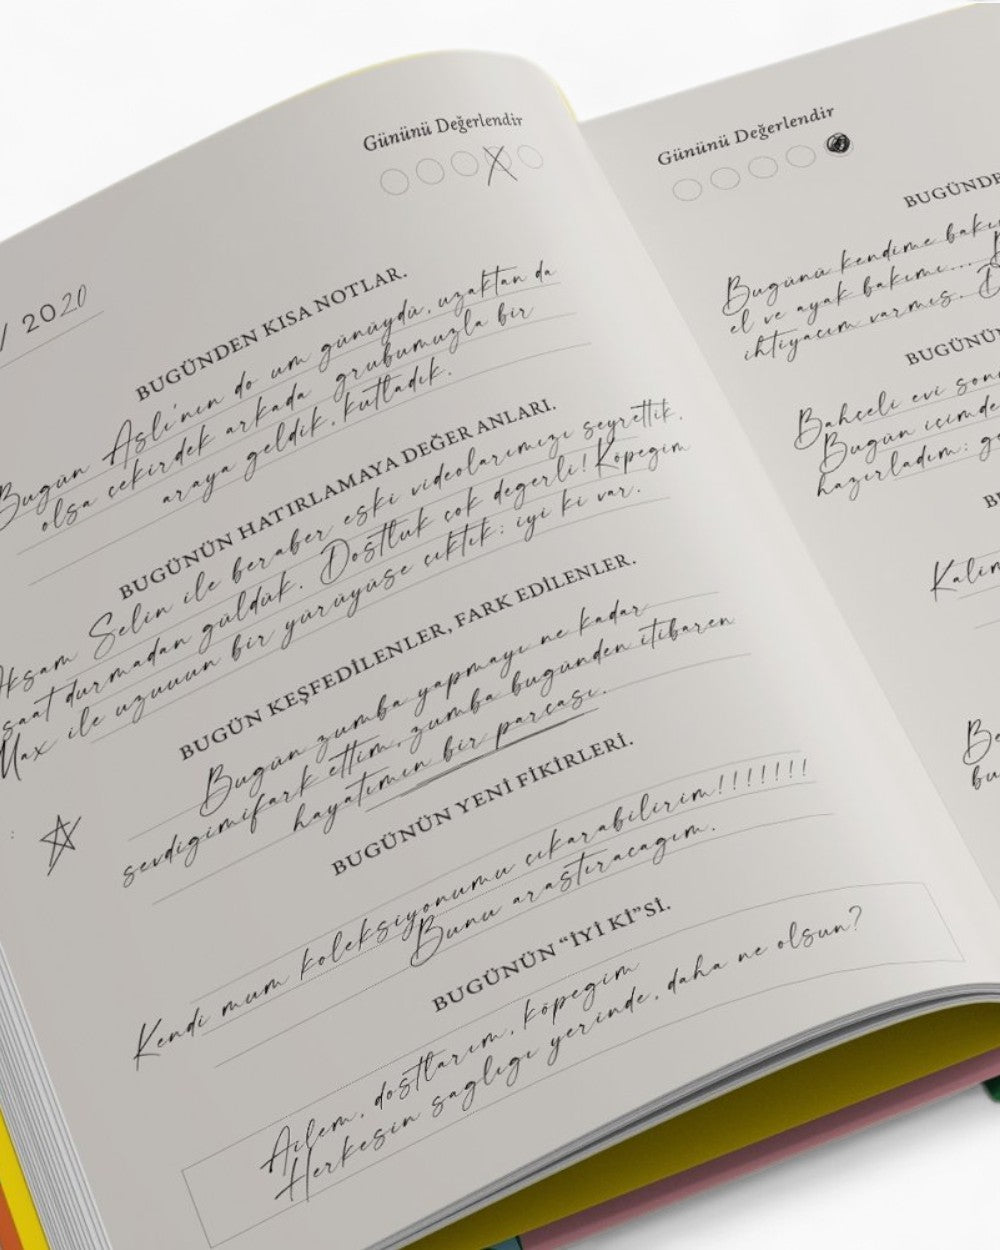 Gününü Değerlendir
/ 2020
BUGÜNDEN KISA NOTLAR.
Bugün Aslı'nın do um günüydü, uzaktan da
olsa çekirdek arkada grubumuzla bir
araya geldik, kutladık.
BUGÜNÜN HATIRLAMAYA DEĞER ANLARI.
Akşam Selin ile beraber eski videolarımızı seyrettik.
saat durmadan güldük. Dostluk çok degerli! Köpegim
Max ile uzuuun bir yürüyüse cıktık: iyi ki var.
BUGÜN KEŞFEDİLENLER, FARK EDİLENLER.
Bugün zumba yapmayı ne kadar
sevdigimifark ettim, zumba bugünden itibaren
hayatımın bir parçası.
BUGÜNÜN YENİ FİKİRLERİ.
Kendi mum koleksiyonumu cıkarabilirim!!!!!!!
Bunu arastıracagım.
BUGÜNÜN “İYİ Kİ”Sİ.
Ailem, dostlarım, köpegim
Herkesin saglıgı yerinde, daha ne olsun?
Gününü Değerlendir
BUGÜNDE
Bugünü kendime bakı
el ve ayak bakımı...
ihtiyacım varmıs.
BUGÜNÜ
Bahceli evi son
Bugün icimde
hazırladım: g